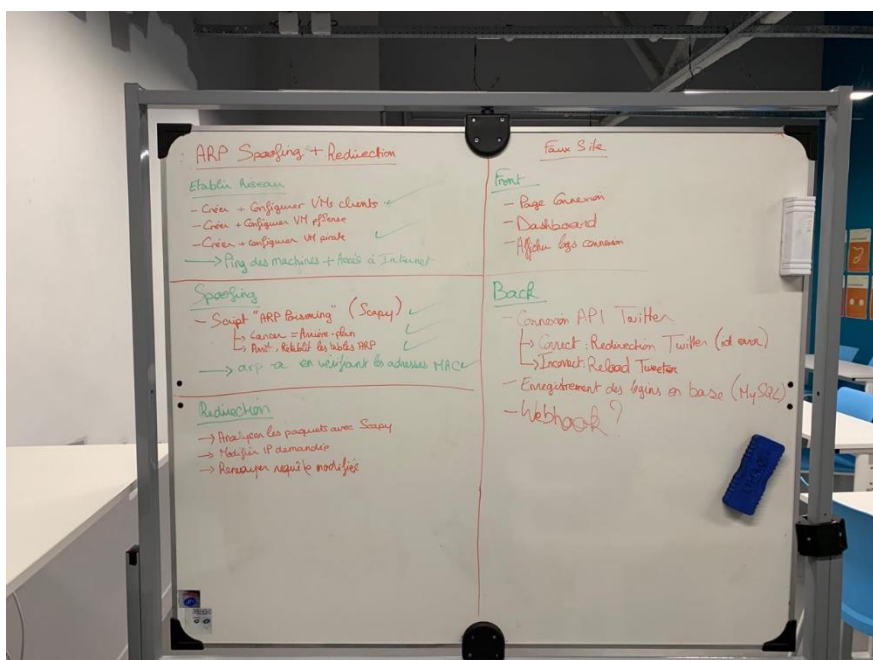 ARP Spoofing + Redirection
Etablir Réseau
- Créer + Configurer VMs clients
- Créer + Configurer VM pfSense
- Créer + configurer VM pirate
→ Ping des machines + Accès à Internet
Spoofing
- Script "ARP Poisoning" (Scapy)
↳ Lancer = Arrière-plan
↳ Arrêt : Rétablit les tables ARP
→ arp -a en vérifiant les adresses MAC
Redirection
→ Analyser les paquets avec Scapy
→ Modifier IP demandée
→ Renvoyer requête modifiée
Faux Site
Front
- Page Connexion
- Dashboard
- Afficher logs connexion
Back
- Connexion API Twitter
↳ Correct : Redirection Twitter (id error)
↳ Incorrect : Reload Tweeter
- Enregistrement des logins en base (MySQL)
- Webhook ?